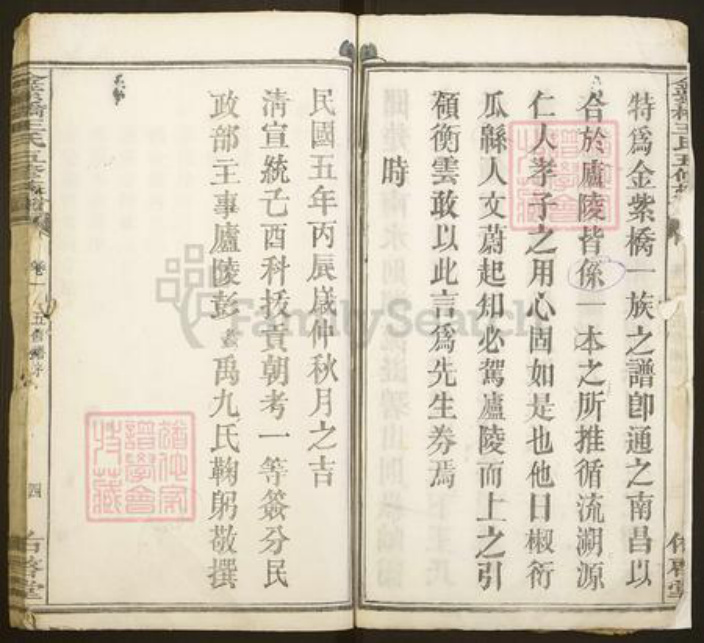 特爲金紫橋一族之譜卽通之南昌以
合於廬陵皆係一本之所推循流溯源
仁人孝子之用心固如是也他日椒衍
瓜緜人文蔚起知必駕廬陵而上之引
領衡雲敢以此言爲先生券焉
時
民國五年丙辰歲仲秋月之吉
清宣統己酉科拔貢朝考一等簽分民
政部主事廬陵彭 禹九氏鞠躬敬撰
卷一
五修譜序
四
FamilySearch